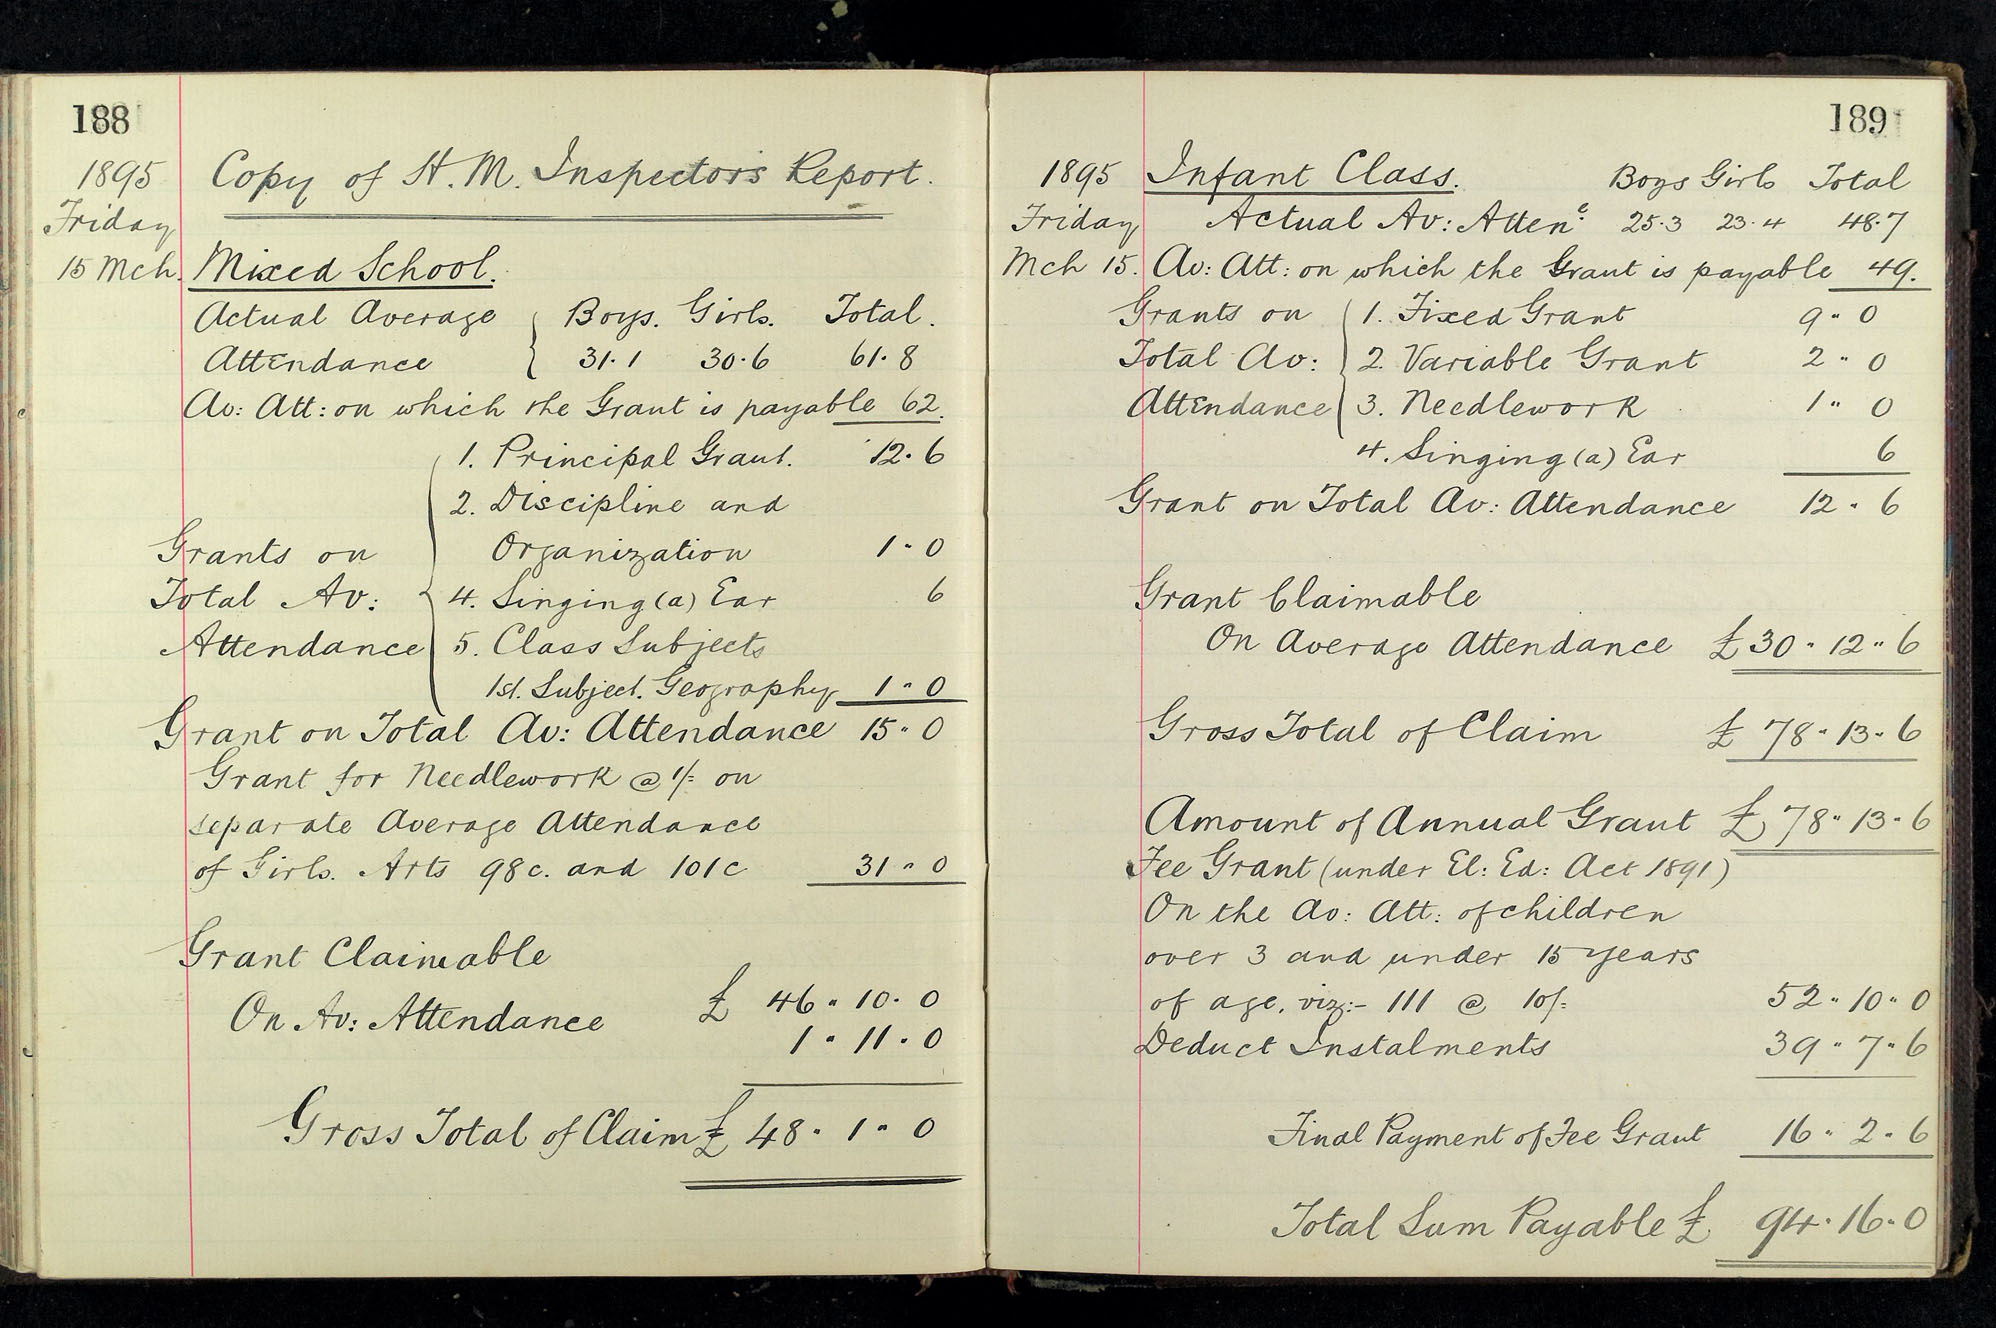 188
1895 Copy of H. M. Inspectors Report.
Friday
15 Mch. Mixed School.
Actual Average { Boys. Girls. Total.
Attendance 31.1 30.6 61.8
Av: Att: on which the Grant is payable 62.
1. Principal Grant. 12.6
2. Discipline and
Grants on Organization 1 " 0
Total Av: 4. Singing (a) Ear 6
Attendance 5. Class Subjects
1st. Subject. Geography 1 " 0
Grant on Total Av: Attendance 15 " 0
Grant for Needlework @ 1/= on
separate Average Attendance
of Girls. Arts 98c. and 101c 31 " 0
Grant Claimable
On Av: Attendance £ 46 " 10 . 0
1 " 11 . 0
Gross Total of Claim £ 48 . 1 " 0
189
1895 Infant Class. Boys Girls Total
Friday Actual Av: Attence 25.3 23.4 48.7
Mch 15. Av: Att: on which the Grant is payable 49.
Grants on 1. Fixed Grant 9 " 0
Total Av: 2. Variable Grant 2 " 0
Attendance 3. Needlework 1 " 0
4. Singing (a) Ear 6
Grant on Total Av: Attendance 12 . 6
Grant Claimable
On Average Attendance £30 " 12 " 6
Gross Total of Claim £ 78 " 13 " 6
Amount of Annual Grant £ 78 " 13 " 6
Fee Grant (under El: Ed: Act 1891)
On the Av: Att: of children
over 3 and under 15 years
of age, viz:- 111 @ 10/= 52 " 10 " 0
Deduct Instalments 39 " 7 " 6
Final Payment of Fee Grant 16 " 2 " 6
Total Sum Payable £ 94 " 16 " 0